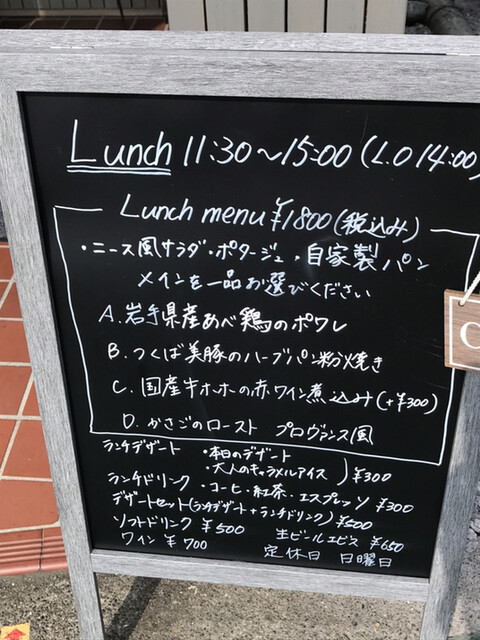 Lunch 11:30～15:00 (L.O 14:00)
Lunch menu ¥1800(税込み)
・ニース風サラダ・ポタージュ・自家製パン
メインを一品お選びください
A.岩手県産あべ鶏のポワレ
B.つくば美豚のハーブパン粉焼き
C.国産牛ホホの赤ワイン煮込み(+¥300)
D.かさごのロースト プロヴァンス風
ランチデザート ・本日のデザート
・大人のキャラメルアイス )¥300
ランチドリンク・コーヒー・紅茶・エスプレッソ ¥300
デザートセット(ランチデザート+ランチドリンク)¥500
ソフトドリンク ¥500 生ビールエビス ¥650
ワイン ¥700 定休日 日曜日
C